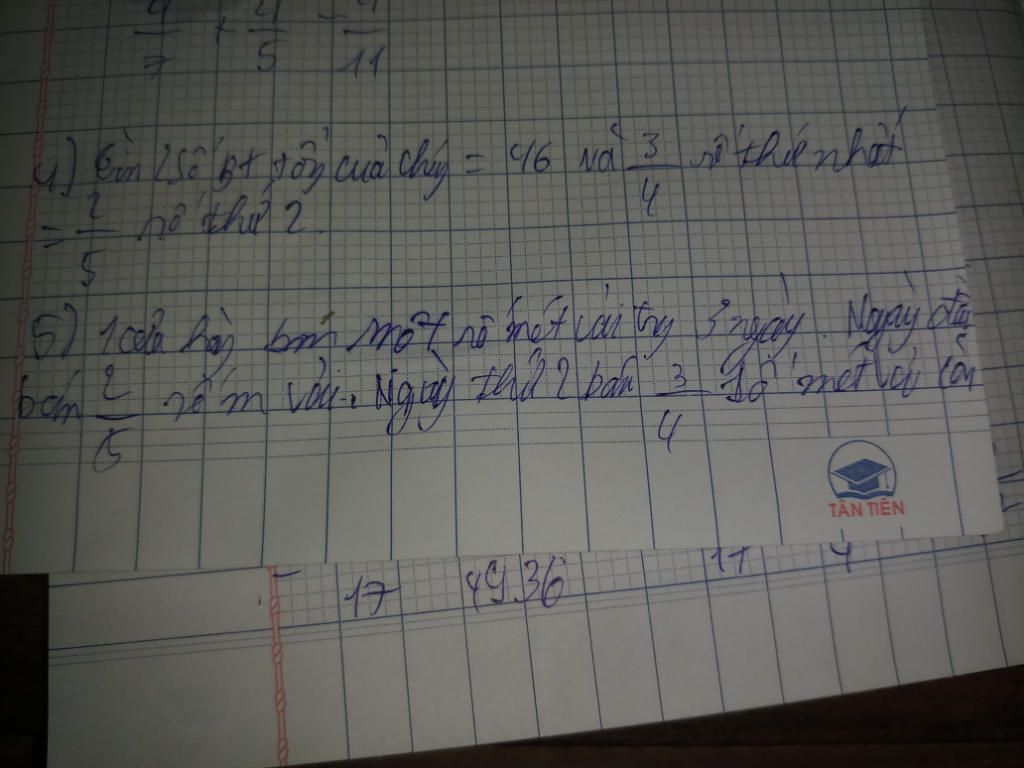 7 + 5 - 11
4) Tìm 2 số Bt tổng của chúng = 46 và 3/4 số thứ nhất
= 2/5 số thứ 2.
5) 1 cửa hàng bán một số mét vải trong 3 ngày. Ngày đầu
bán 2/5 số m vải. Ngày thứ 2 bán 3/4 số mét vải còn
TÂN TIẾN
17 4936 11 4